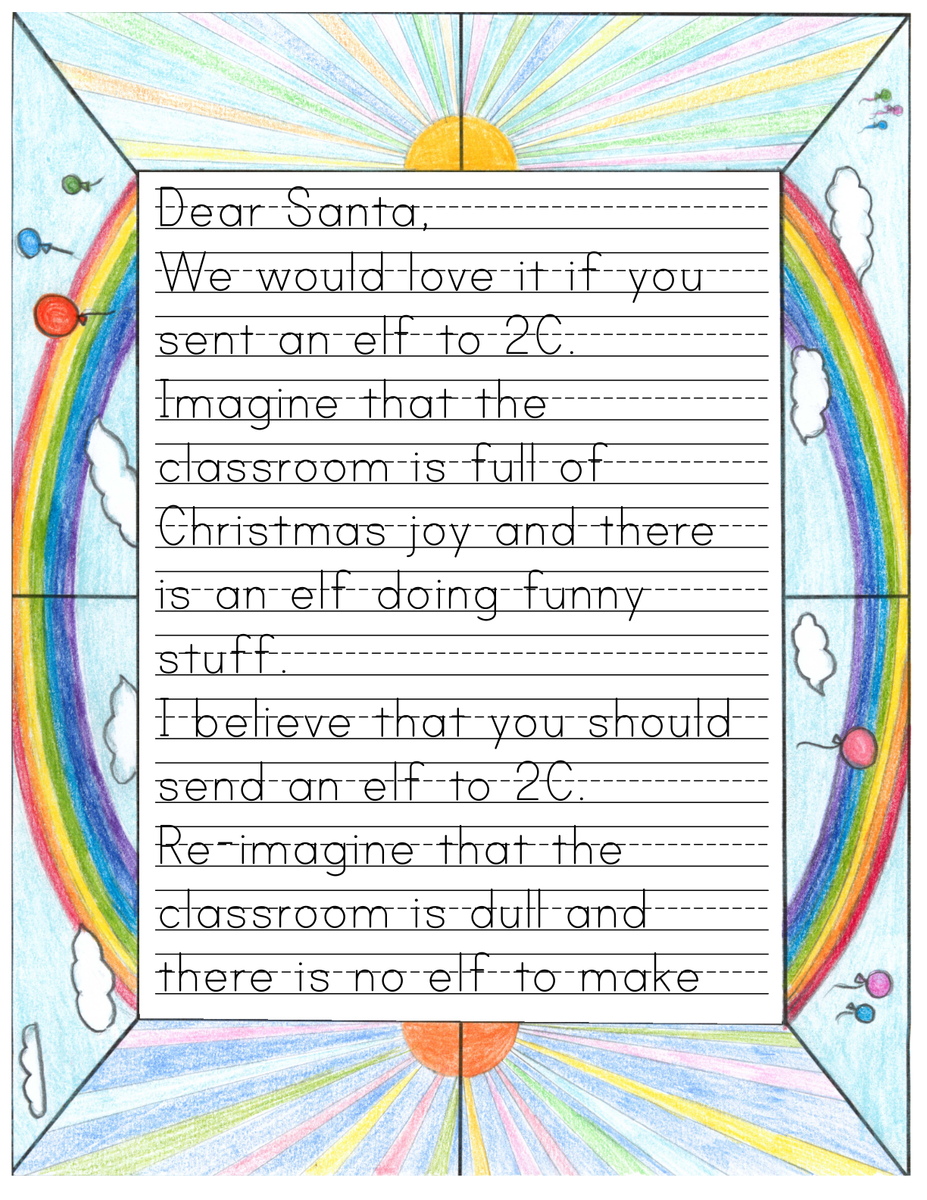 Dear Santa,
We would love it if you
sent an elf to 2C.
Imagine that the
classroom is full of
Christmas joy and there
is an elf doing funny
stuff.
I believe that you should
send an elf to 2C.
Re-imagine that the
classroom is dull and
there is no elf to make